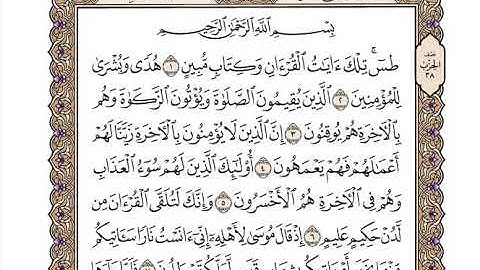 بِسْمِ اللَّهِ الرَّحْمَٰنِ الرَّحِيمِ
طسٓ ۚ تِلْكَ ءَايَٰتُ الْقُرْءَانِ وَكِتَابٍ مُّبِينٍ ١ هُدًى وَبُشْرَىٰ
لِلْمُؤْمِنِينَ ٢ الَّذِينَ يُقِيمُونَ الصَّلَوٰةَ وَيُؤْتُونَ الزَّكَوٰةَ وَهُم
بِالْءَاخِرَةِ هُمْ يُوقِنُونَ ٣ إِنَّ الَّذِينَ لَا يُؤْمِنُونَ بِالْءَاخِرَةِ زَيَّنَّا لَهُمْ
أَعْمَٰلَهُمْ فَهُمْ يَعْمَهُونَ ٤ أُو۟لَٰٓئِكَ الَّذِينَ لَهُمْ سُوٓءُ الْعَذَابِ
وَهُمْ فِي الْءَاخِرَةِ هُمُ الْأَخْسَرُونَ ٥ وَإِنَّكَ لَتُلَقَّى الْقُرْءَانَ مِن
لَّدُنْ حَكِيمٍ عَلِيمٍ ٦ إِذْ قَالَ مُوسَىٰ لِأَهْلِهِۦٓ إِنِّيٓ ءَانَسْتُ نَارًا سَـَٔاتِيكُم
نصف
الحزب
٣٨